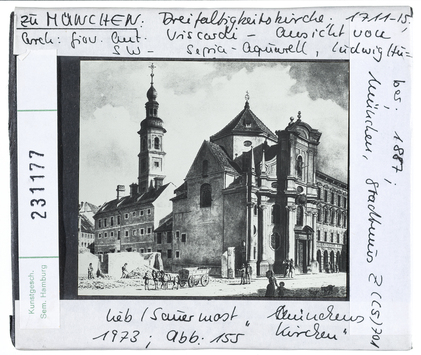 zu MÜNCHEN: Dreifaltigkeitskirche. 1711-15,
Arch: Giov. Ant. Viscardi - Ansicht von
SW - Sepia-Aquarell, Ludwig Hu-
bes. 1887;
München, Stadtmus Z (C15)701
231177
Kunstgesch.
Sem. Hamburg
Lieb / Sauermost "Münchens
1973; Abb. 155 Kirchen"